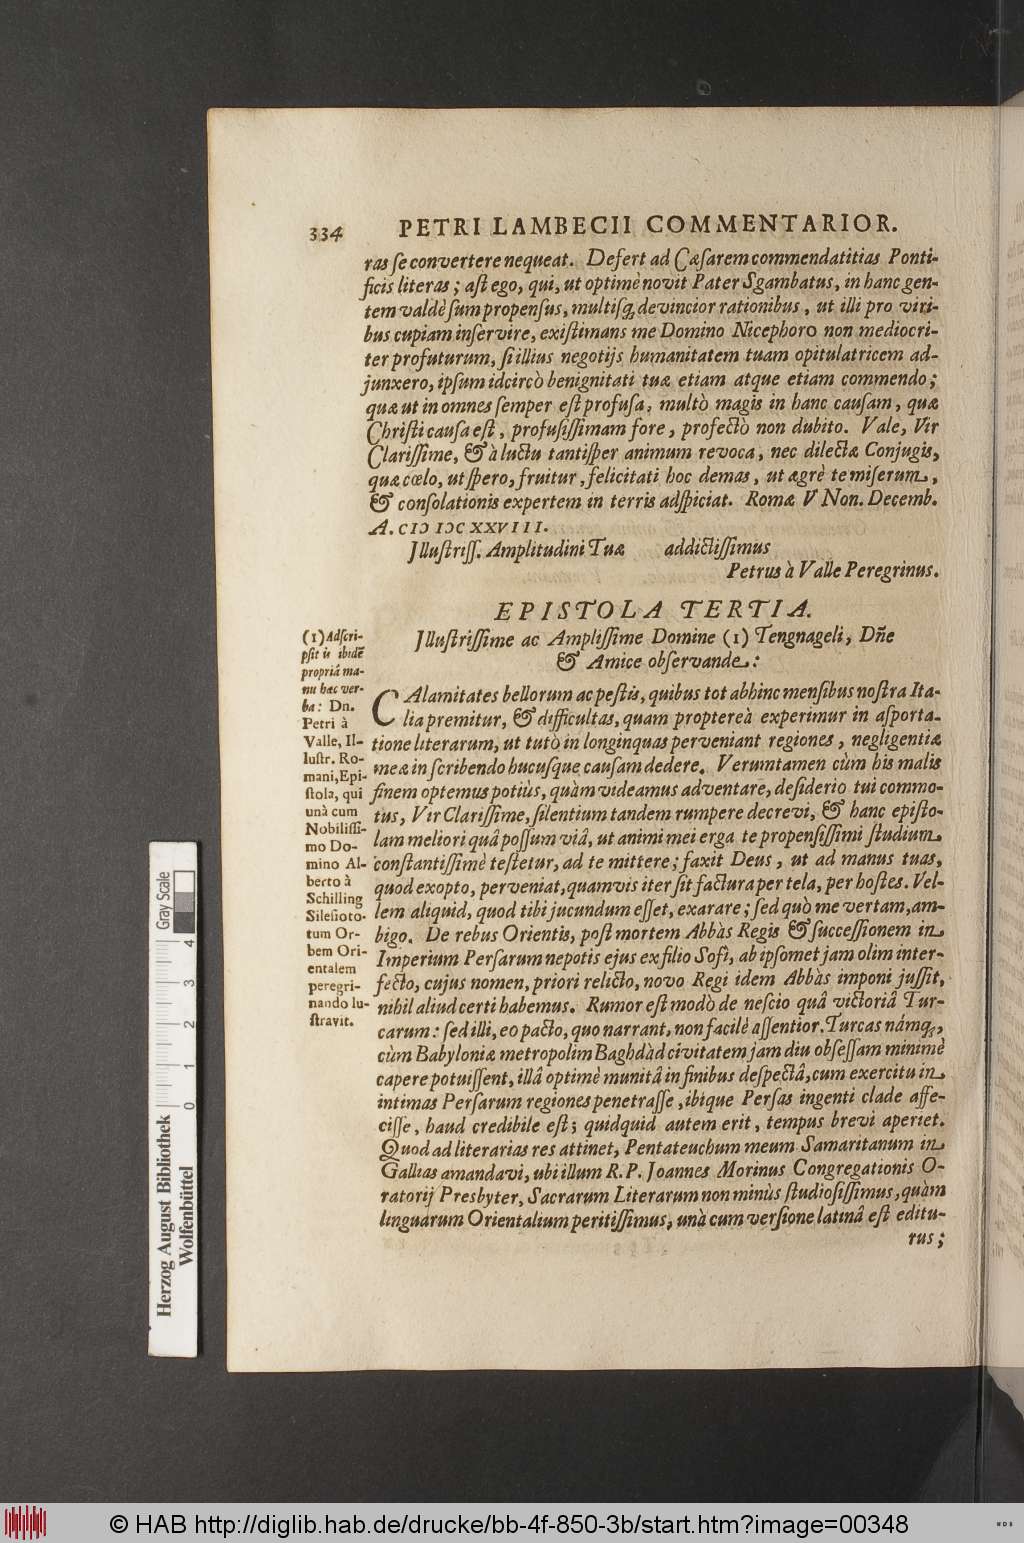 334 PETRI LAMBECII COMMENTARIOR.
ras ſe convertere nequeat. Defert ad Cæſarem commendatitias Ponti-
ficis literas; aſt ego, qui, ut optimè novit Pater Sgambatus, in hanc gen-
tem valdè ſum propenſus, multiſq; devincior rationibus, ut illi pro viri-
bus cupiam inſervire, exiſtimans me Domino Nicephoro non mediocri-
ter profuturum, ſi illius negotijs humanitatem tuam opitulatricem ad-
junxero, ipſum idcircò benignitati tuæ etiam atque etiam commendo;
quæ ut in omnes ſemper eſt profuſa, multò magis in hanc cauſam, quæ
Chriſti cauſa eſt, profuſiſſimam fore, profectò non dubito. Vale, Vir
Clariſſime, & à luctu tantiſper animum revoca, nec dilectæ Conjugis,
quæ cœlo, ut ſpero, fruitur, felicitati hoc demas, ut ægrè te miſerum,
& conſolationis expertem in terris adſpiciat. Romæ V Non. Decemb.
A. CIↃ IↃC XXVIII.
Jlluſtriſſ. Amplitudini Tuæ addictiſſimus
Petrus à Valle Peregrinus.
EPISTOLA TERTIA.
Jlluſtriſſime ac Ampliſſime Domine (1) Tengnageli, Dñe
& Amice obſervande:
CAlamitates bellorum ac peſtis, quibus tot abhinc menſibus noſtra Ita-
lia premitur, & difficultas, quam proptereà experimur in aſporta-
tione literarum, ut tutò in longinquas perveniant regiones, negligentiæ
meæ in ſcribendo hucuſque cauſam dedere. Verumtamen cùm his malis
finem optemus potiùs, quàm videamus adventare, deſiderio tui commo-
tus, Vir Clariſſime, ſilentium tandem rumpere decrevi, & hanc epiſto-
lam meliori quâ poſſum viâ, ut animi mei erga te propenſiſſimi ſtudium
conſtantiſſimè teſtetur, ad te mittere; faxit Deus, ut ad manus tuas,
quod exopto, perveniat, quamvis iter ſit factura per tela, per hoſtes. Vel-
lem aliquid, quod tibi jucundum eſſet, exarare; ſed quò me vertam, am-
bigo. De rebus Orientis, poſt mortem Abbàs Regis & ſucceſſionem in
Imperium Perſarum nepotis ejus ex filio Sofì, ab ipſomet jam olim inter-
fecto, cujus nomen, priori relicto, novo Regi idem Abbàs imponi juſſit,
nihil aliud certi habemus. Rumor eſt modò de neſcio quâ victoriâ Tur-
carum: ſed illi, eo pacto, quo narrant, non facilè aſſentior. Turcas námq;,
cùm Babyloniæ metropolim Baghdàd civitatem jam diu obſeſſam minimè
capere potuiſſent, illâ optimè munitâ in finibus deſpectâ, cum exercitu in
intimas Perſarum regiones penetraſſe, ibique Perſas ingenti clade affe-
ciſſe, haud credibile eſt; quidquid autem erit, tempus brevi aperiet.
Quod ad literarias res attinet, Pentateuchum meum Samaritanum in
Gallias amandavi, ubi illum R. P. Joannes Morinus Congregationis O-
ratorij Presbyter, Sacrarum Literarum non minùs ſtudioſiſſimus, quàm
linguarum Orientalium peritiſſimus, unà cum verſione latinâ eſt editu-
rus;
(1) Adſcri-
pſit is ibidẽ
propriâ ma-
nu hæc ver-
ba: Dn.
Petri à
Valle, Il-
luſtr. Ro-
mani, Epi-
ſtola, qui
unà cum
Nobiliſſi-
mo Do-
mino Al-
berto à
Schilling
Sileſio to-
tum Or-
bem Ori-
entalem
peregri-
nando lu-
ſtravit.
Gray Scale
4
3
2
1
0
Herzog August Bibliothek
Wolfenbüttel
© HAB http://diglib.hab.de/drucke/bb-4f-850-3b/start.htm?image=00348
WDB